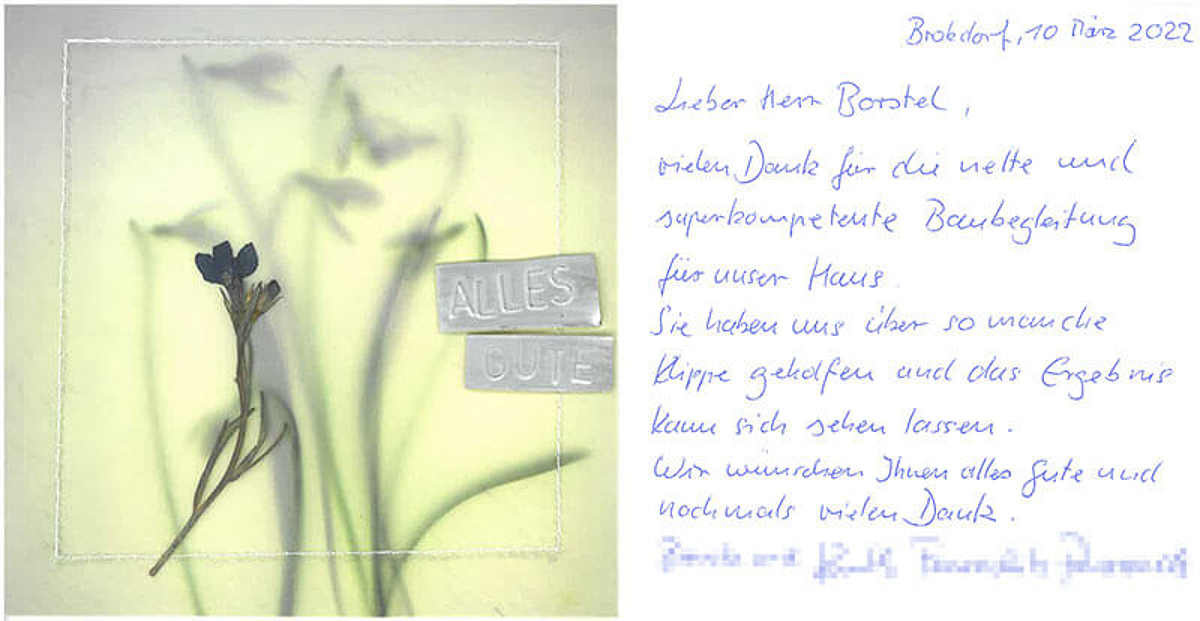 ALLES
GUTE
Brokdorf, 10 März 2022
Lieber Herr Borstel,
vielen Dank für die nette und
superkompetente Baubegleitung
für unser Haus.
Sie haben uns über so manche
Klippe geholfen und das Ergebnis
kann sich sehen lassen.
Wir wünschen Ihnen alles Gute und
nochmals vielen Dank.